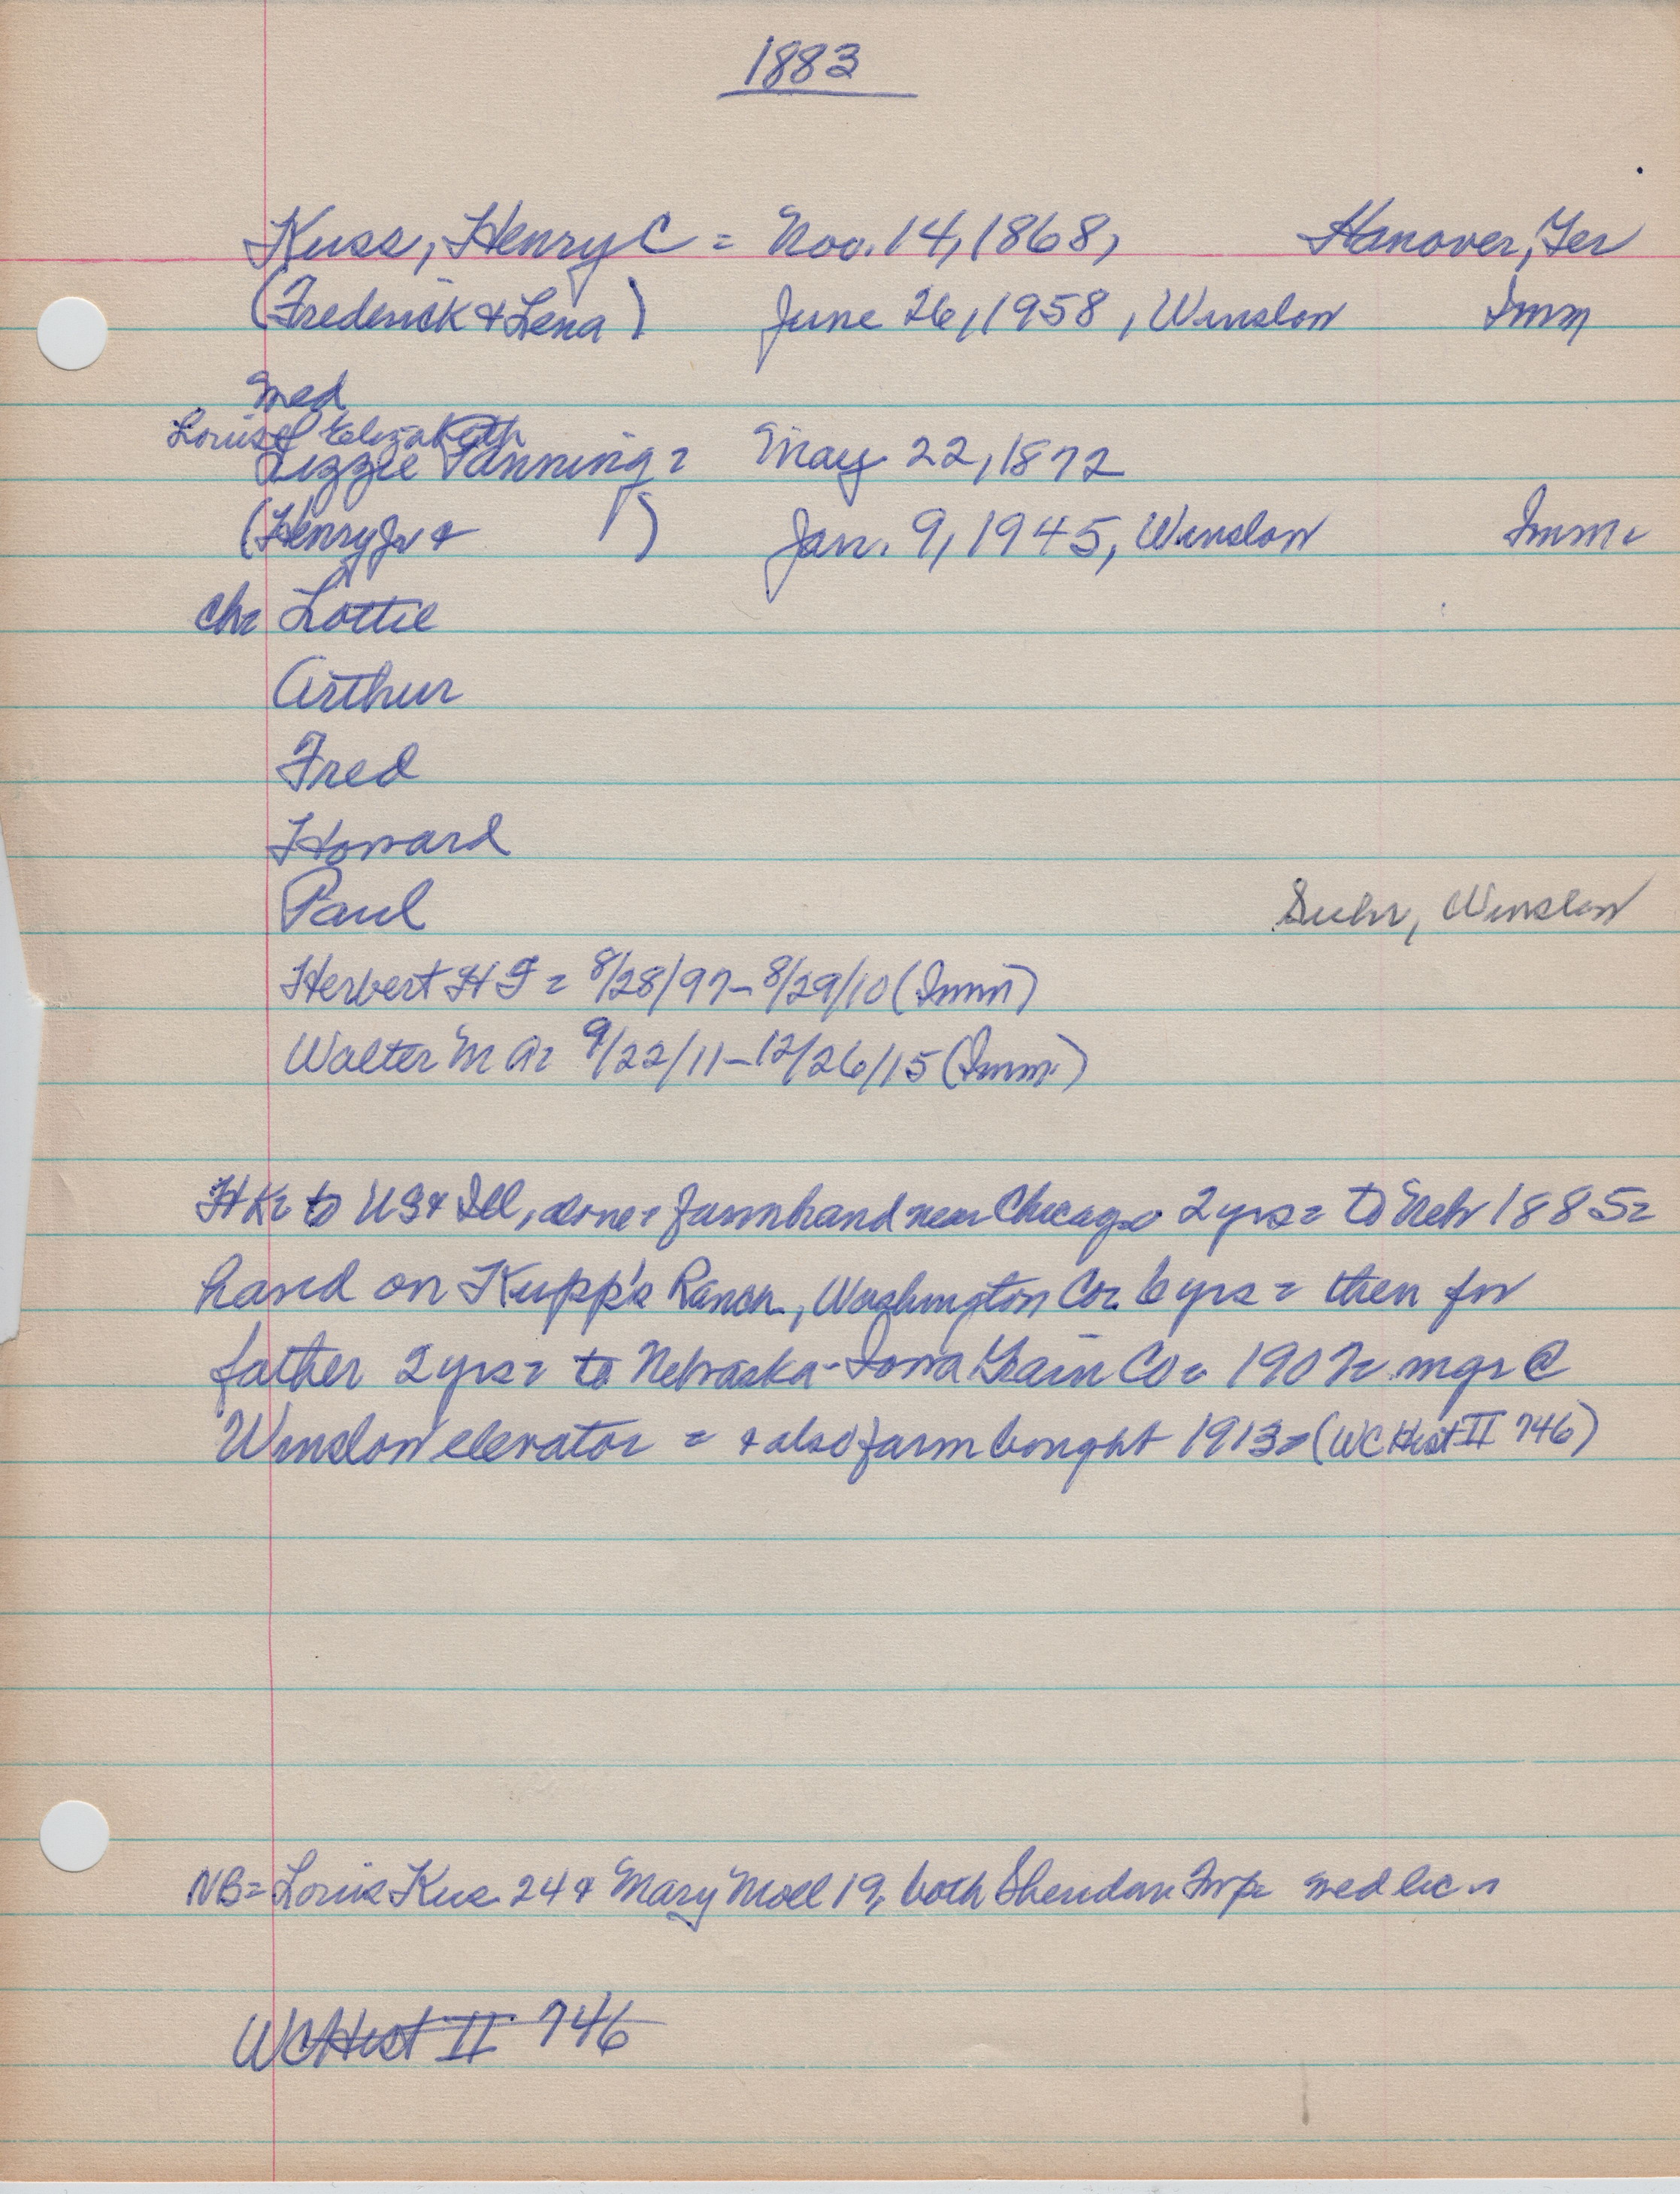 1883
Kuss, Henry C = Nov. 14, 1868, Hanover, Ger
(Frederick & Lena) June 26, 1958, Winslow Imm
med
Louise Elizabeth
Lizzie Panning = May 22, 1872
(Henry Jr & ) Jan. 9, 1945, Winslow Imm.
ch= Lottie
Arthur
Fred
Howard
Paul Suhr, Winslow
Herbert H F = 8/28/97 - 8/29/10 (Imm)
Walter M A = 9/22/11 - 12/26/15 (Imm.)
HK= to US & Ill, alone = farmhand near Chicago 2 yrs = to Neb 1885=
hand on Kupp's Ranch, Washington Co= 6 yrs = then for
father 2 yrs = to Nebraska-Iowa Grain Co = 1907= mgr @
Winslow elevator = & also farm bought 1913= (WC Hist II 746)
NB= Louis Kus 24 & Mary Moll 19, both Sheridan Twp= med lic
WC Hist II 746